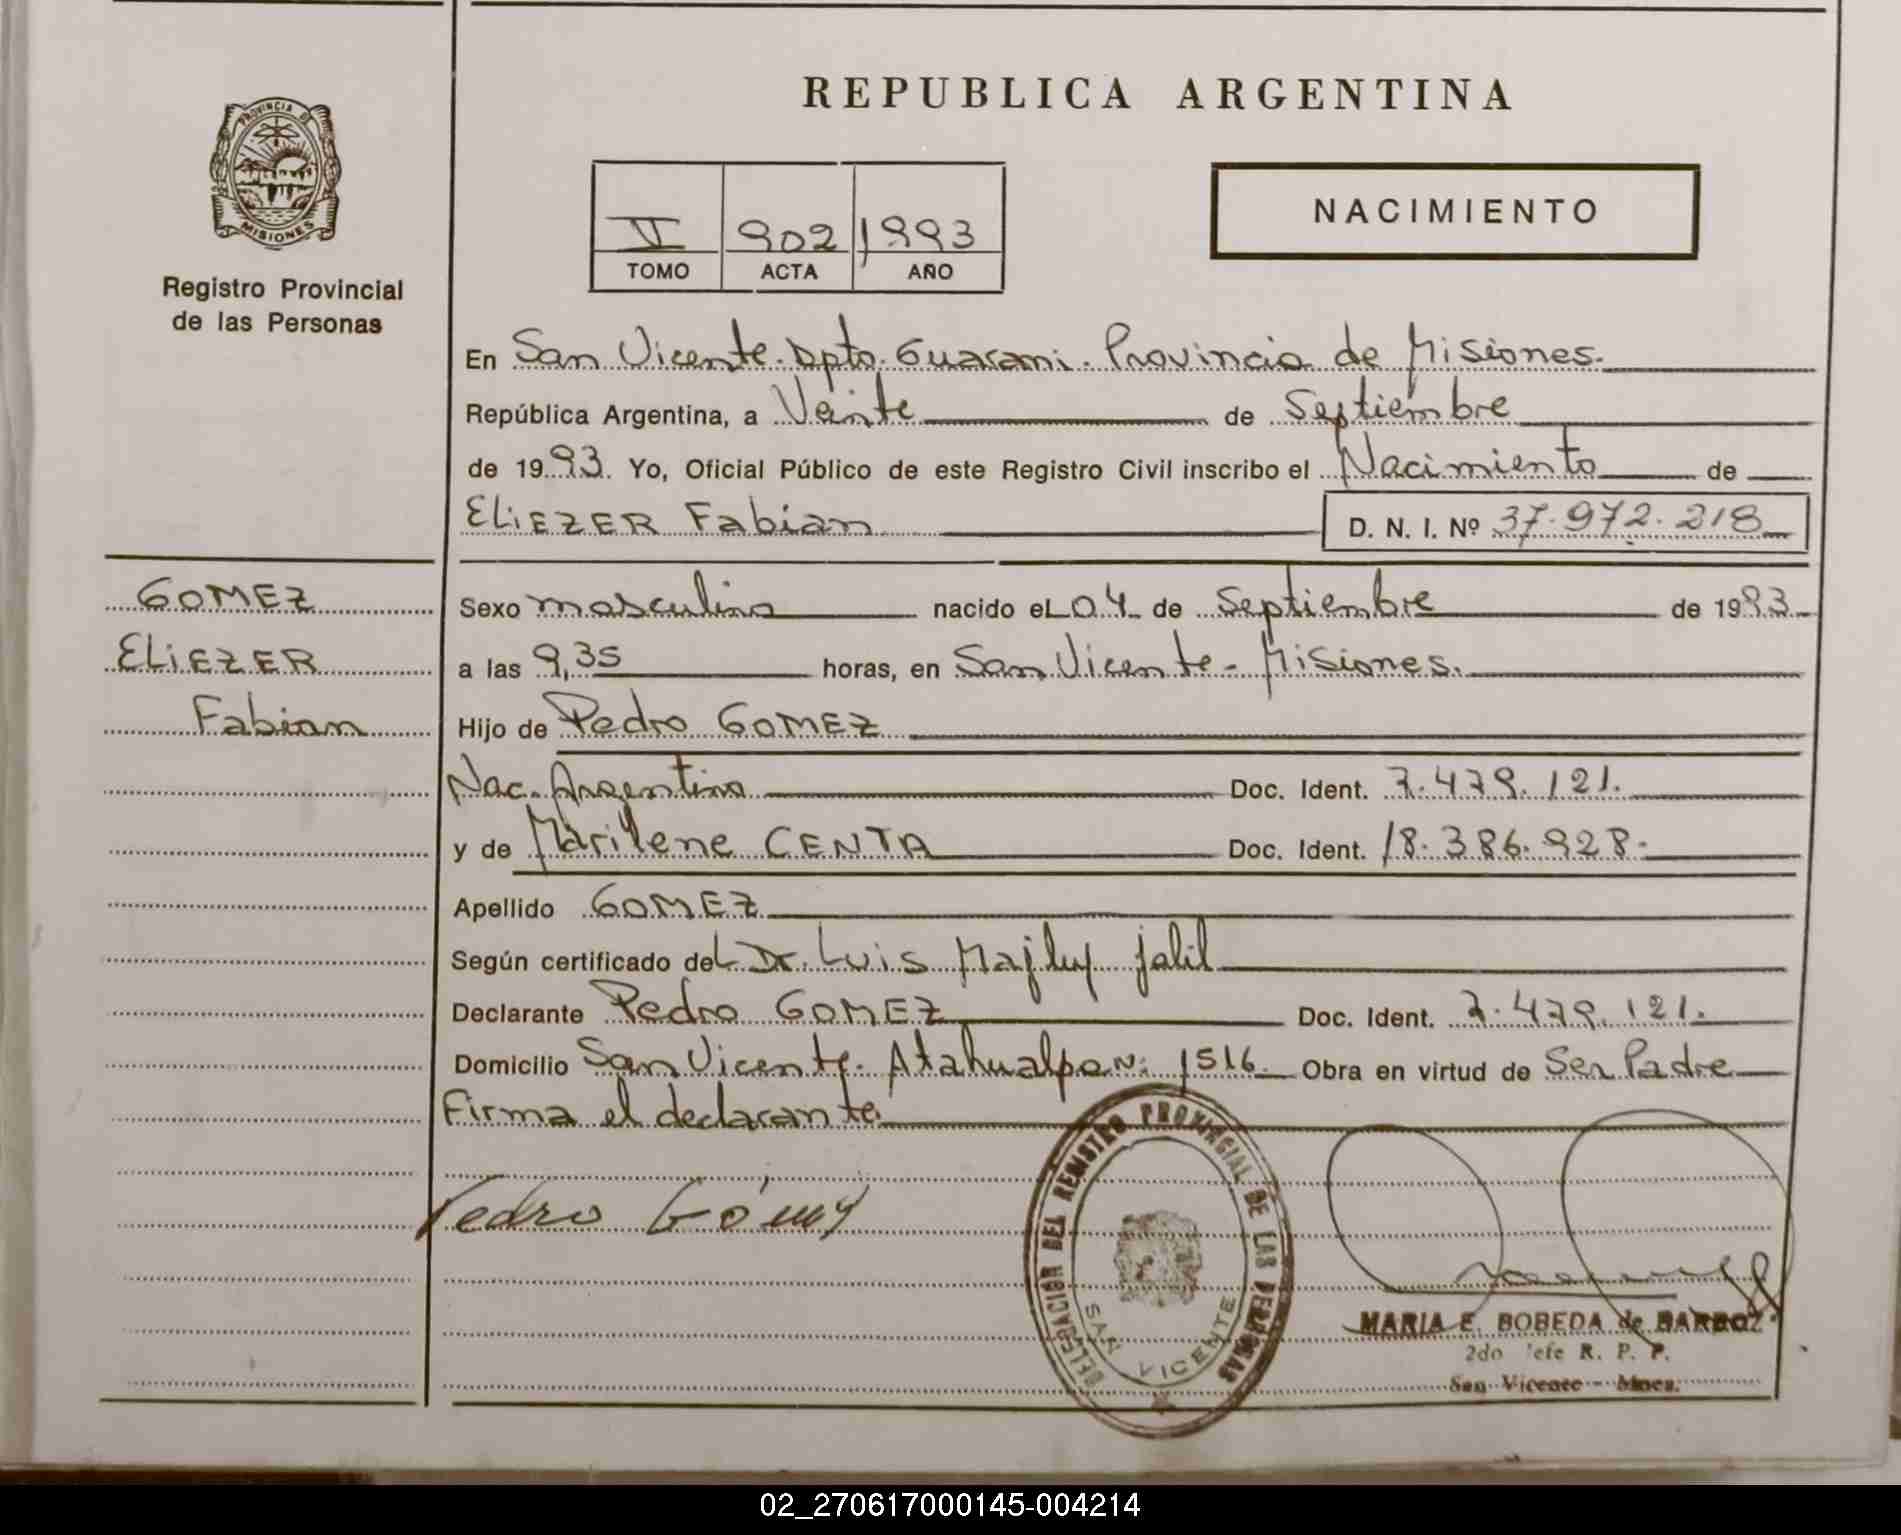 REPUBLICA ARGENTINA
PROVINCIA DE
MISIONES
Registro Provincial
de las Personas
V 902 1993
TOMO ACTA AÑO
NACIMIENTO
En San Vicente. Dpto. Guarani. Provincia de Misiones.
República Argentina, a Veinte de Septiembre
de 1993. Yo, Oficial Público de este Registro Civil inscribo el Nacimiento de
ELIEZER Fabian D. N. I. Nº 37.972.218
GOMEZ
ELIEZER
Fabian
Sexo masculino nacido el 04 de Septiembre de 1993
a las 9,35 horas, en San Vicente - Misiones.
Hijo de Pedro GOMEZ
Nac. Argentina Doc. Ident. 7.479.121.
y de Marilene CENTA Doc. Ident. 18.386.928.
Apellido GOMEZ
Según certificado del Dr. Luis Majluf Jalil
Declarante Pedro GOMEZ Doc. Ident. 7.479.121.
Domicilio San Vicente. Atahualpa N: 1516. Obra en virtud de Ser Padre
Firma el declarante.
Pedro Gómez
DELEGACION DEL REGISTRO PROVINCIAL DE LAS PERSONAS
SAN VICENTE
MARIA E. BOBEDA de BARBOZ
2do Jefe R. P. P.
San Vicente - Mnes.
02_270617000145-004214